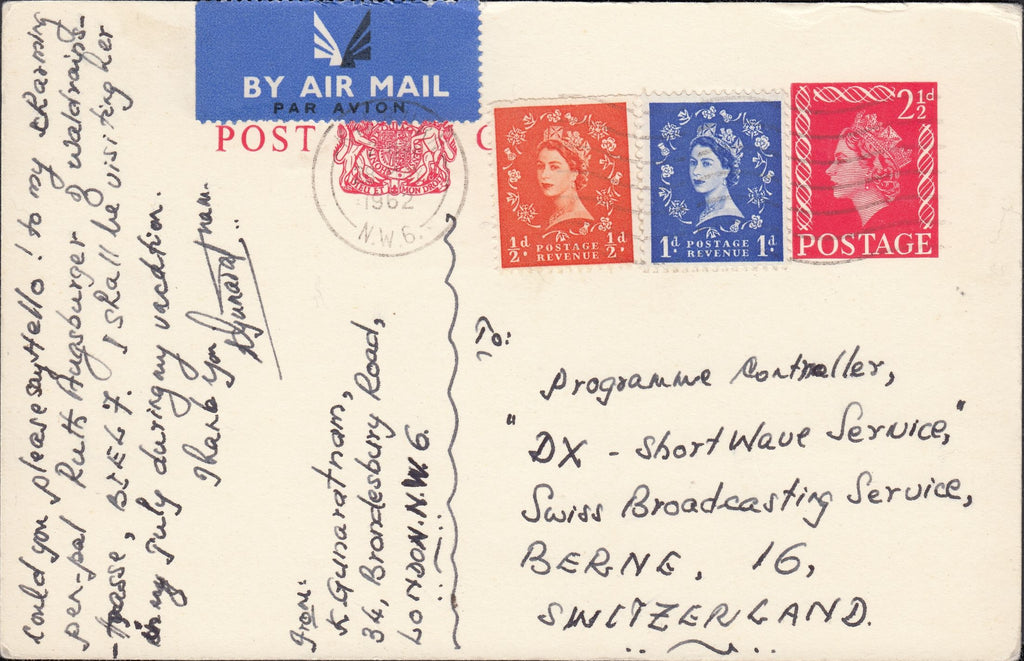 BY AIR MAIL
PAR AVION
POST C
MON DROIT
1962
N.W.6.
1/2d. POSTAGE REVENUE 1/2d.
1d. POSTAGE REVENUE 1d.
2 1/2d
POSTAGE
Could you please say Hello! to my charming
pen-pal Ruth Augsburger of Waldrains-
-trasse, BIEL 7. I shall be visiting her
in my July during my vacation.
Thank you
KGunaratnam.
From:
K. Gunaratnam,
34, Brondesbury Road,
LONDON. N.W. 6.
To:
Programme Controller,
"DX - Short Wave Service,"
Swiss Broadcasting Service,
BERNE, 16,
SWITZERLAND.